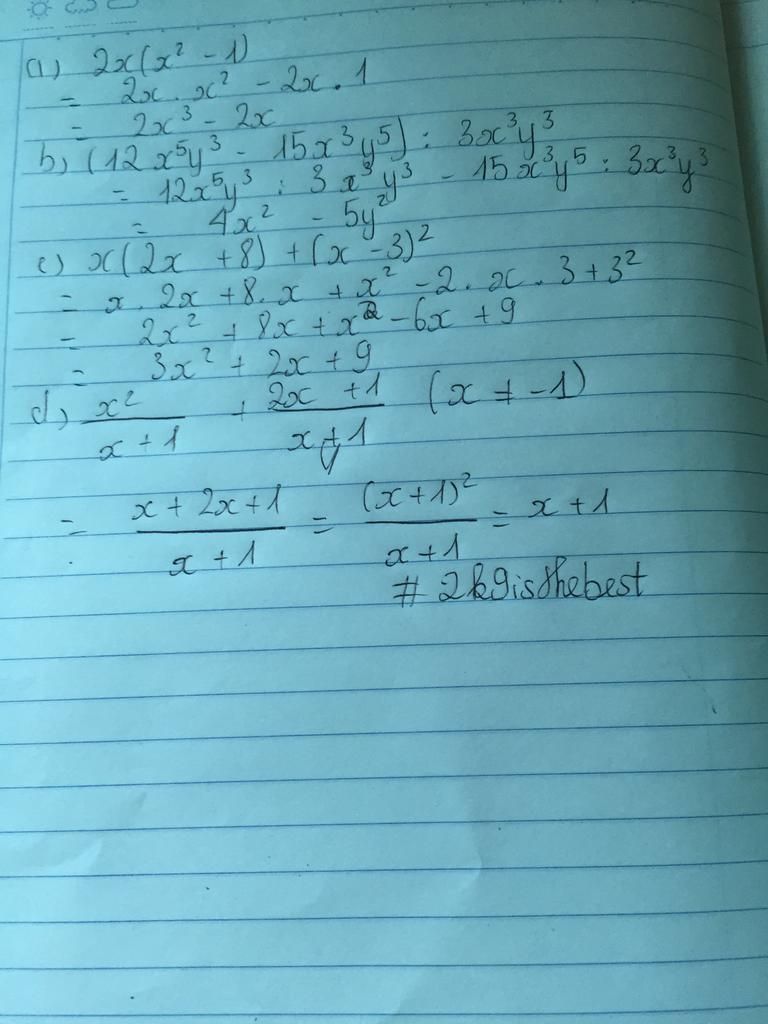 a) 2x(x² - 1)
= 2x . x² - 2x . 1
= 2x³ - 2x
b) (12x⁵y³ - 15x³y⁵) : 3x³y³
= 12x⁵y³ : 3x³y³ - 15x³y⁵ : 3x³y³
= 4x² - 5y²
c) x(2x + 8) + (x - 3)²
= x . 2x + 8 . x + x² - 2 . x . 3 + 3²
= 2x² + 8x + x² - 6x + 9
= 3x² + 2x + 9
d) x²/(x + 1) + (2x + 1)/(x + 1) (x ≠ -1)
= (x + 2x + 1)/(x + 1) = (x + 1)²/(x + 1) = x + 1
# 2k9isthebest